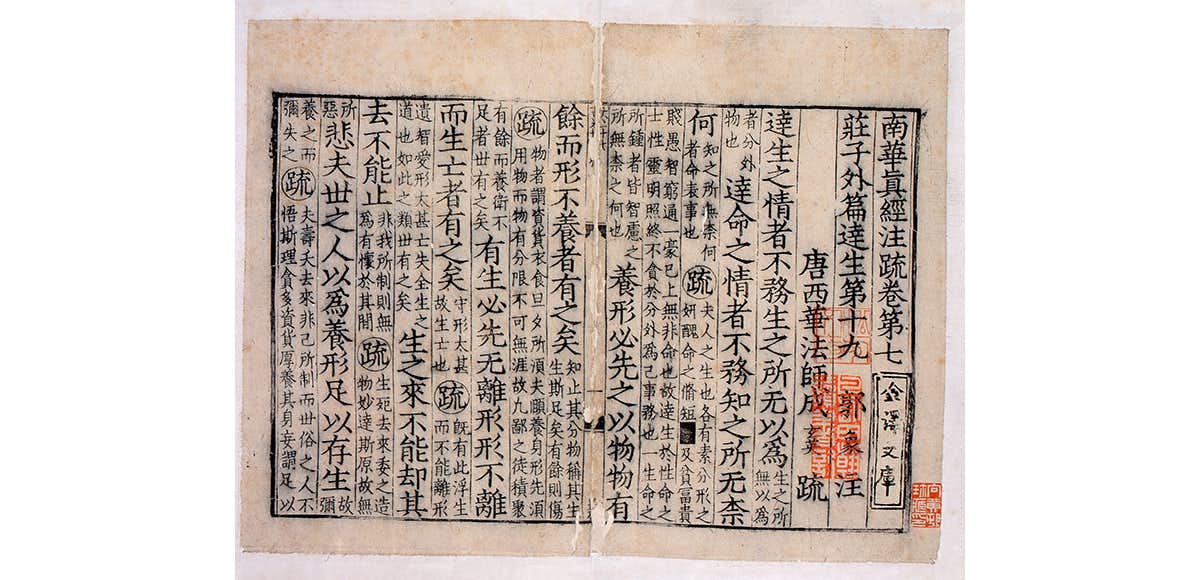 南華眞經注疏卷第七
金澤文庫
莊子外篇達生第十九 郭象注
唐西華法師成玄英疏
達生之情者不務生之所无以爲 生之所無以爲
者分外物也 達命之情者不務知之所无柰
何 知之所無柰何者命表事也 疏 夫人之生也各有素分形之妍醜命之脩短 及貧富貴
賤愚智窮通一豪已上無非命也故達生於性命之士性靈明照終不貪於分外爲己事務也一生命之
所鍾者皆智慮之所無柰之何也 養形必先之以物物有
餘而形不養者有之矣 知止其分物稱其生生斯足矣有餘則傷
疏 物者謂資貨衣食旦夕所須夫頤養身形先須用物而物有分限不可無涯故凡鄙之徒積聚
有餘而養衛不足者丗有之矣 有生必先无離形形不離
而生亡者有之矣 守形太甚故生亡也 疏 旣有此浮生而不能離形
遺智愛形太甚亡失全生之道也如此之類丗有之矣 生之來不能却其
去不能止 非我所制則無爲有懷於其間 疏 生死去來委之造物妙達斯原故無
所惡 悲夫丗之人以爲養形足以存生 故彌
養之而彌失之 疏 夫壽夭去來非己所制而丗俗之人不悟斯理貪多資貨厚養其身妄謂足以